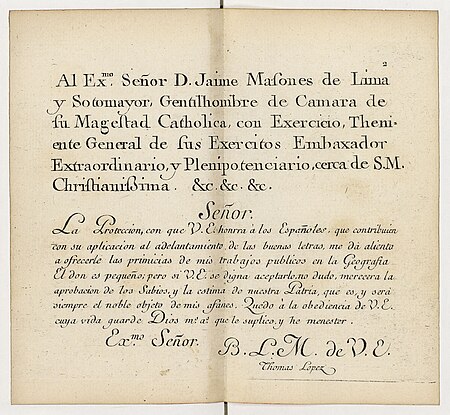 2
Al Ex.mo Señor D. Jaime Masones de Lima
y Sotomayor, Gentilhombre de Camara de
su Magestad Catholica, con Exercicio, Theni-
ente General de sus Exercitos Embaxador
Extraordinario, y Plenipotenciario, cerca de S.M.
Christianissima. &c. &c. &c.
Señor.
La Proteccion, con que V.E. honrra à los Españoles, que contribuien
con su aplicacion al adelantamiento de las buenas letras, me dà aliento
a ofrecerle las primicias de mis trabajos publicos en la Geografia
El don es pequeño; pero si V.E. se digna aceptarlo, no dudo, merecera la
aprobacion de los Sabios, y la estima de nuestra Patria, que es, y serà
siempre el noble objeto de mis afanes. Quedo à la obediencia de V.E.
cuya vida guarde Dios m.s a.s que le suplico, y he menester.
Ex.mo Señor.
B.L.M. de V.E.
Thomas Lopez